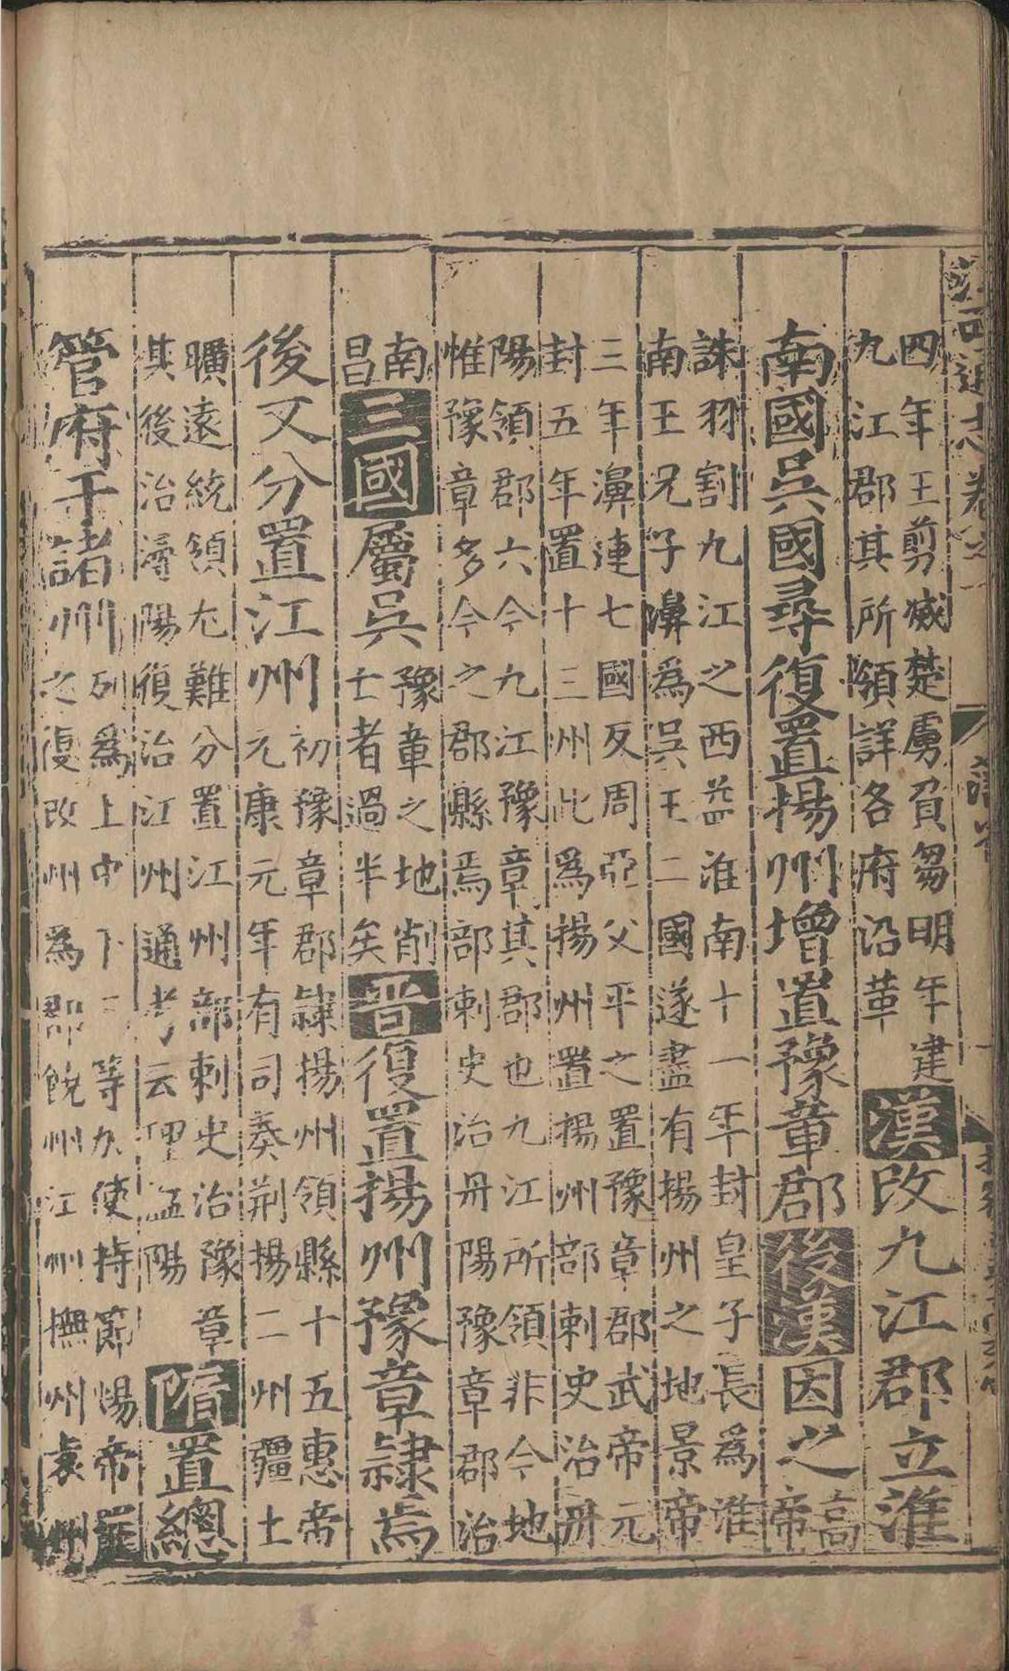 四年王剪滅楚虜負芻明年建
九江郡其所領詳各府沿革
漢改九江郡立淮
南國吳國尋復置揚州增置豫章郡後漢因之
高
帝
誅羽割九江之西益淮南十一年封皇子長為淮
南王兄子濞為吳王二國遂盡有揚州之地景帝
三年濞連七國反周亞父平之置豫章郡武帝元
封五年置十三州此為揚州置揚州部刺史治丹
陽領郡六今九江豫章其郡也九江所領非今地
惟豫章多今之郡縣焉部刺史治丹陽豫章郡治
南
昌
三國屬吳
豫章之地削
士者過半矣
晉復置揚州豫章隷焉
後又分置江州
初豫章郡隷揚州領縣十五惠帝
元康元年有司奏荊揚二州疆土
曠遠統領尤難分置江州部刺史治豫章
其後治潯陽復治江州通考云理湓陽
隋置總
管府于諸州
列為上中下三等加使持節煬帝罷
之復改州為郡饒州江州撫州袁州